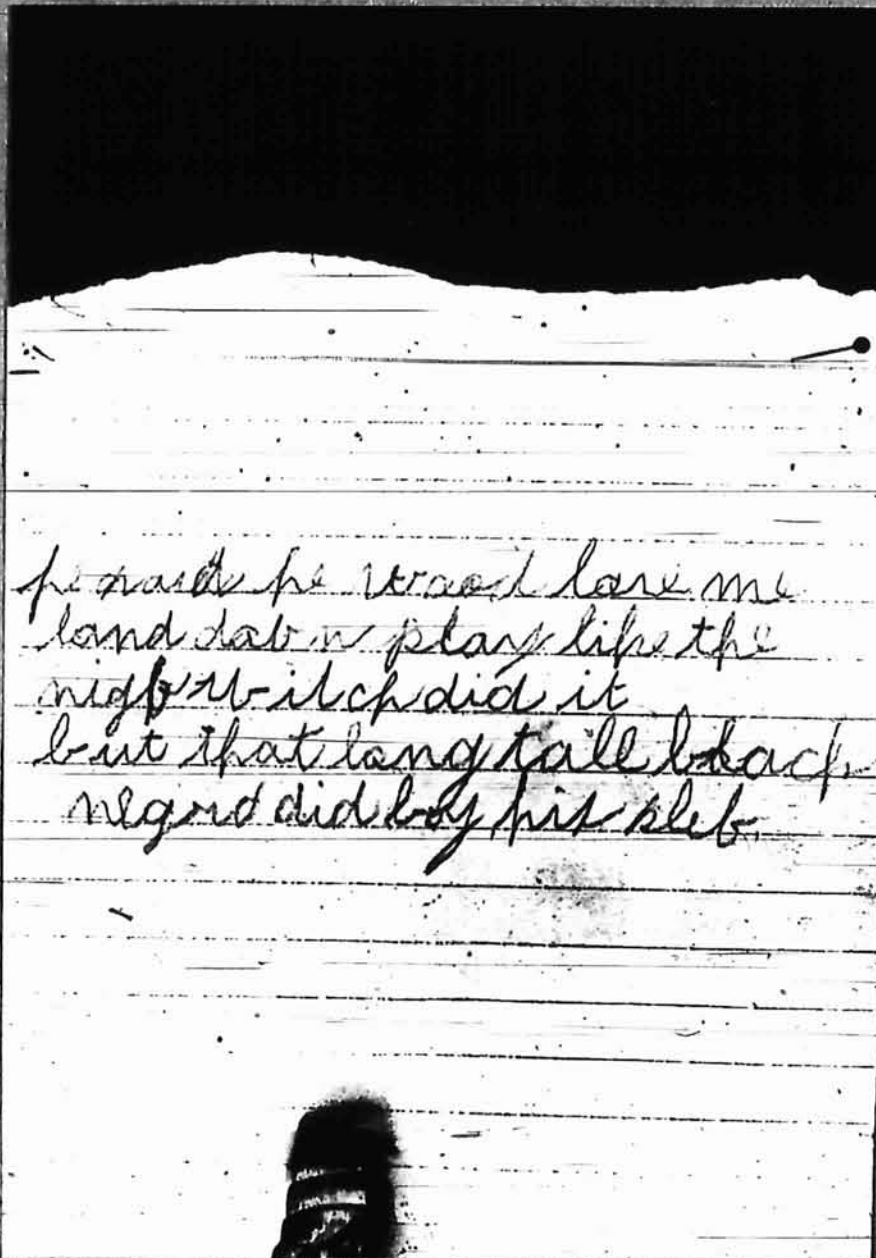 he said he wood love me
land dab n play like the
night witch did it
but that long tall black
negro did boy his sleb.